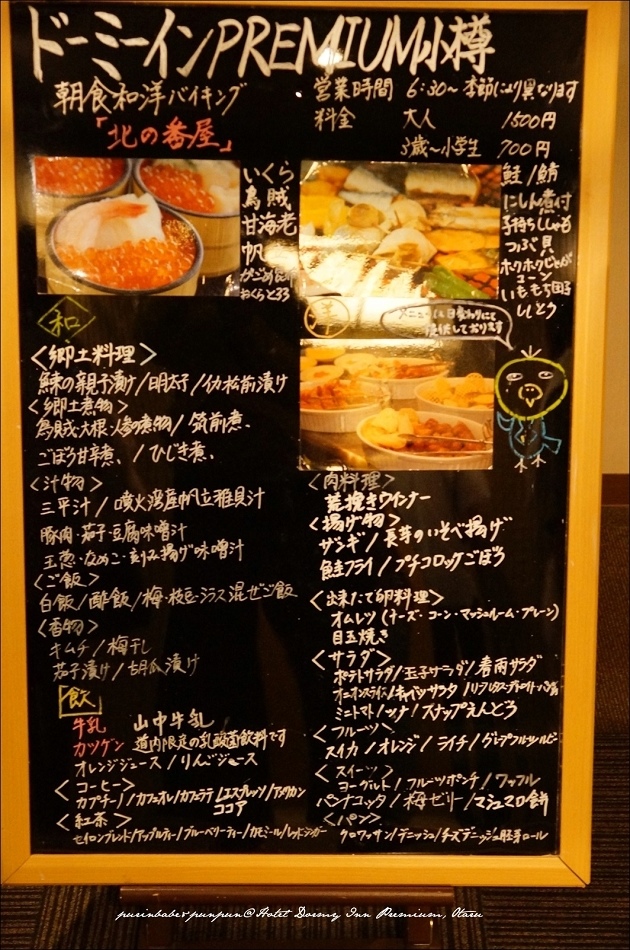 ドーミーインPREMIUM小樽
朝食和洋バイキング
「北の番屋」
営業時間 6:30~ 季節により異なります
料金 大人 1500円
3歳~小学生 700円
いくら
烏賊
甘海老
帆
がごめ昆布
おくらとろろ
鮭/鯖
にしん煮付
子持ちししゃも
つぶ貝
ホクホクじゃが
コーン
いももち団子
ししとう
和
洋
メニューは日替わりにて
提供しております
<郷土料理>
鰊の親子漬け/明太子/イカ松前漬け
<郷土煮物>
烏賊・大根・人参の煮物/筑前煮、
ごぼう甘辛煮、/ひじき煮、
<汁物>
三平汁/噴火湾産帆立稚貝汁
豚肉・茄子・豆腐味噌汁
玉葱・なめこ・刻み揚げ味噌汁
<ご飯>
白飯/酢飯/梅・枝豆・シラス混ぜご飯
<香物>
キムチ/梅干し
茄子漬け/胡瓜漬け
飲
牛乳 山中牛乳
カツゲン 道内限定の乳酸菌飲料です
オレンジジュース/りんごジュース
<コーヒー>
カプチーノ/カフェオレ/カフェラテ/エスプレッソ/アメリカン
ココア
<紅茶>
セイロンブレンド/アップルティー/ブルーベリーティー/カモミール/レッドジンガー
<肉料理>
荒挽きウインナー
<揚げ物>
ザンギ/長芋のいそべ揚げ
鮭フライ/プチコロッケごぼう
<出来たて卵料理>
オムレツ(チーズ・コーン・マッシュルーム・プレーン)
目玉焼き
<サラダ>
ポテトサラダ/玉子サラダ/春雨サラダ
オニオンスライス/キャベツサラダ
ミニトマト/ツナ/スナップえんどう
<フルーツ>
スイカ/オレンジ/ライチ/グレープフルーツルビー
<スイーツ>
ヨーグルト/フルーツポンチ/ワッフル
パンナコッタ/梅ゼリー/マシュマロ餅
<パン>
クロワッサン/デニッシュ/チーズデニッシュ/胚芽ロール
purinbaber punpun@Hotel Dormy Inn Premium, Otaru